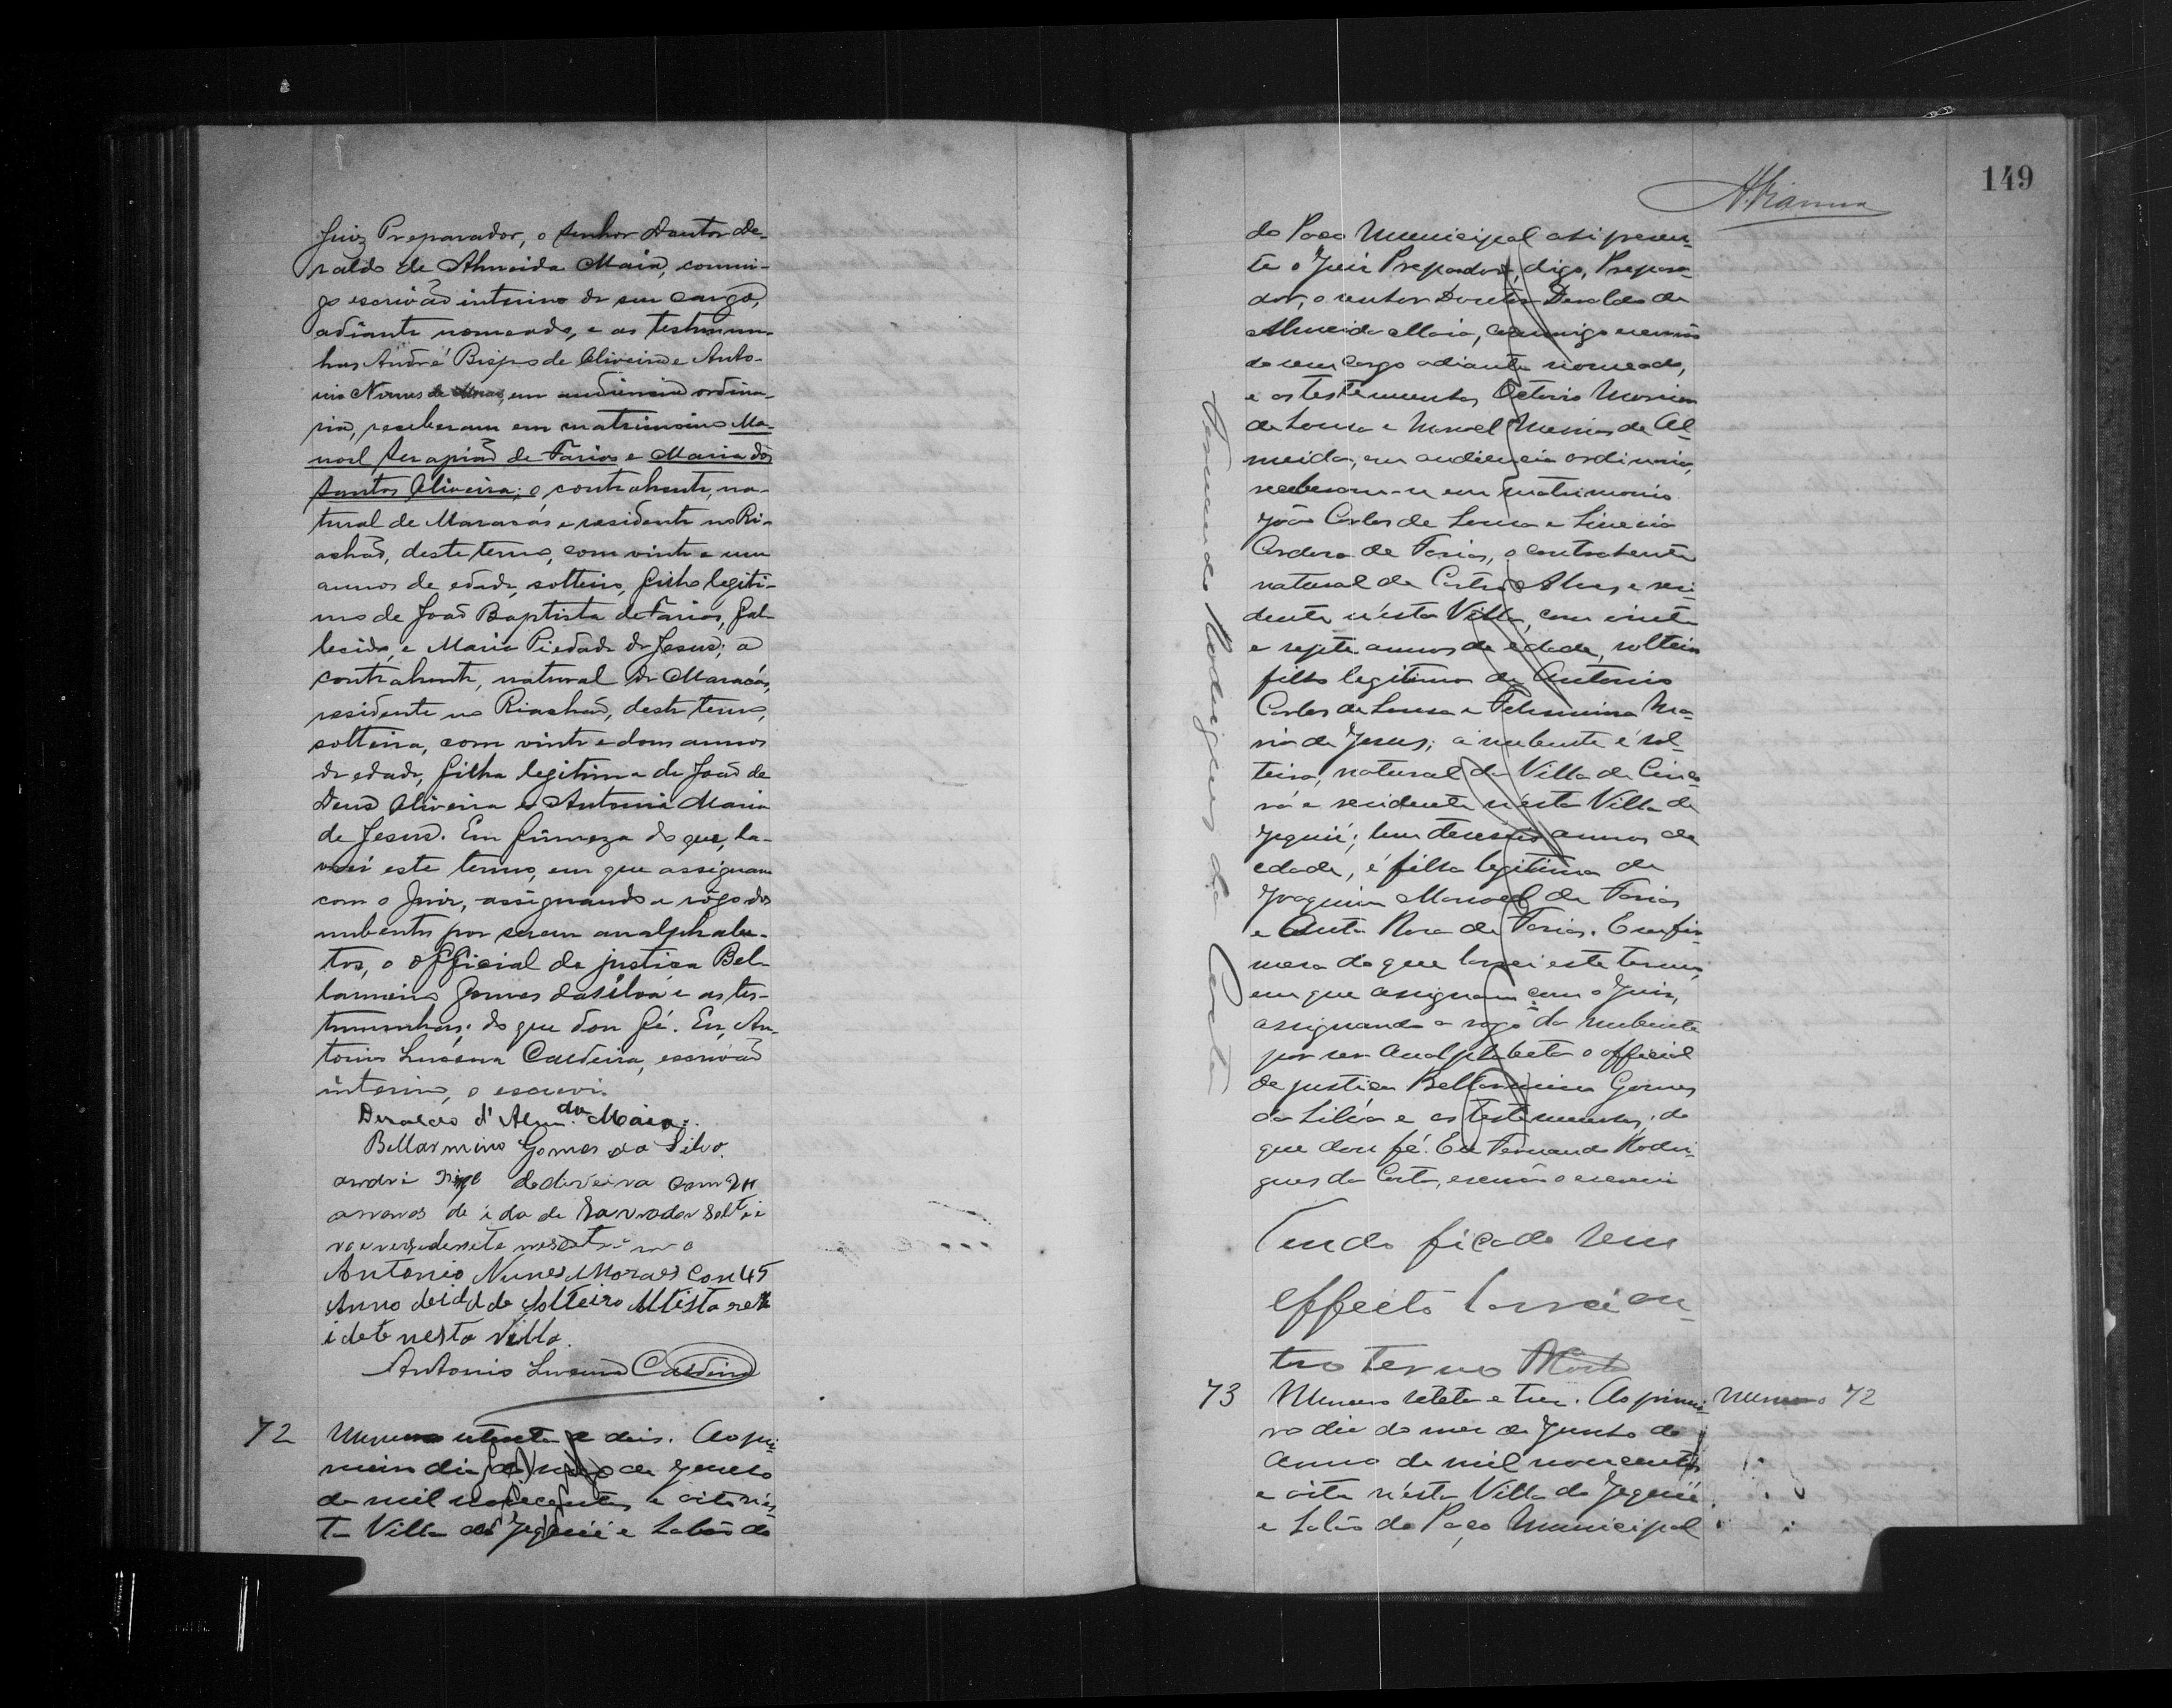 Juiz Preparador, o senhor Doutor De-
raldo de Almeida Maia, commi-
go escrivão interino de seu cargo,
adiante nomeado, e as testemun-
has André Bispo de Oliveira e Anto-
nio Nunes de Moraes, em audiencia ordina-
ria, receberam em matrimonio Ma-
noel Serapião de Farias e Maria dos
Santos Oliveira; o contrahente, na-
tural de Maracás e residente no Ri-
achão, deste termo, com vinte e um
annos de edade, solteiro, filho legiti-
mo de João Baptista de Farias, fal-
lecido, e Maria Piedade de Jesus; a
contrahente, natural de Maracás,
residente no Riachão, deste termo,
solteira, com vinte e dous annos
de edade, filha legitima de João de
Deus Oliveira e Antonia Maria
de Jesus. Em firmeza do que, la-
vrei este termo, em que assignam
com o Juiz, assignando a rôgo dos
nubentes por serem analphabe-
tos, o official de justiça Bel-
larmino Gomes da Silva e as tes-
temunhas; do que dou fé. Eu, An-
tonio Lucena Caldeira, escrivão
interino, o escrevi.
Deraldo d'Alm.da Maia.
Bellarmino Gomes da Silva.
andri de oliveira com
annos de idade Lavrador Soltei
ro e
Antonio Nunes Moraes Con 45
Anno deidade Solteiro Altista rez
idete nesta Villa.
Antonio Lucena Caldeira
72 Numero setenta e dois. Ao pri-
meiro dia do mez de Junho
de mil novecentos e oito nés-
ta Villa de Jequié e Salão do
149
A. Vianna
do Paço Municipal ahi presen-
te o Juiz Prepardor, digo, Prepara-
dor, o senhor Doutor Deraldo de
Almeida Maia, commigo escrivão
de seu cargo adiante nomeado,
e as testemunhas Octavio Moreira
de Sousa e Manoel Messias de Al-
meida, em audiencia ordinaria,
receberam-se em matrimonio
João Carlos de Sousa e
Cordora de Farias, o contrahente
natural de Castro Alves e resi-
dente n'ésta Villa, com vinte
e sete annos de edade, solteiro
filho legitimo de Antonio
Carlos de Sousa e Felismina Ma-
ria de Jesus; a nubente é sol-
teira, natural da Villa de
e residente n'ésta Villa de
Jequié; tem annos de
edade, é filha legitima de
Joaquim Manoel de Farias
e Anta Rosa de Farias. Em fir-
mesa do que lavrei este termo,
em que assignam com o Juiz,
assignando a rogo da nubente
por ser analphabeta o official
de justiça Bellarmino Gomes
da Silva e as testemunhas; do
que dou fé. Eu Fernando Rodri-
gues da Costa, escrivão o escrevi
Fernando Rodrigues da Costa
Tendo ficado sem
effeito lavrei ou-
tro termo RCosta
73 Numero setenta e tres. Ao primei- Numero 72
ro dia do mez de Junho do
anno de mil novecentos
e oito n'ésta Villa de Jequié
e Salão do Paço Municipal